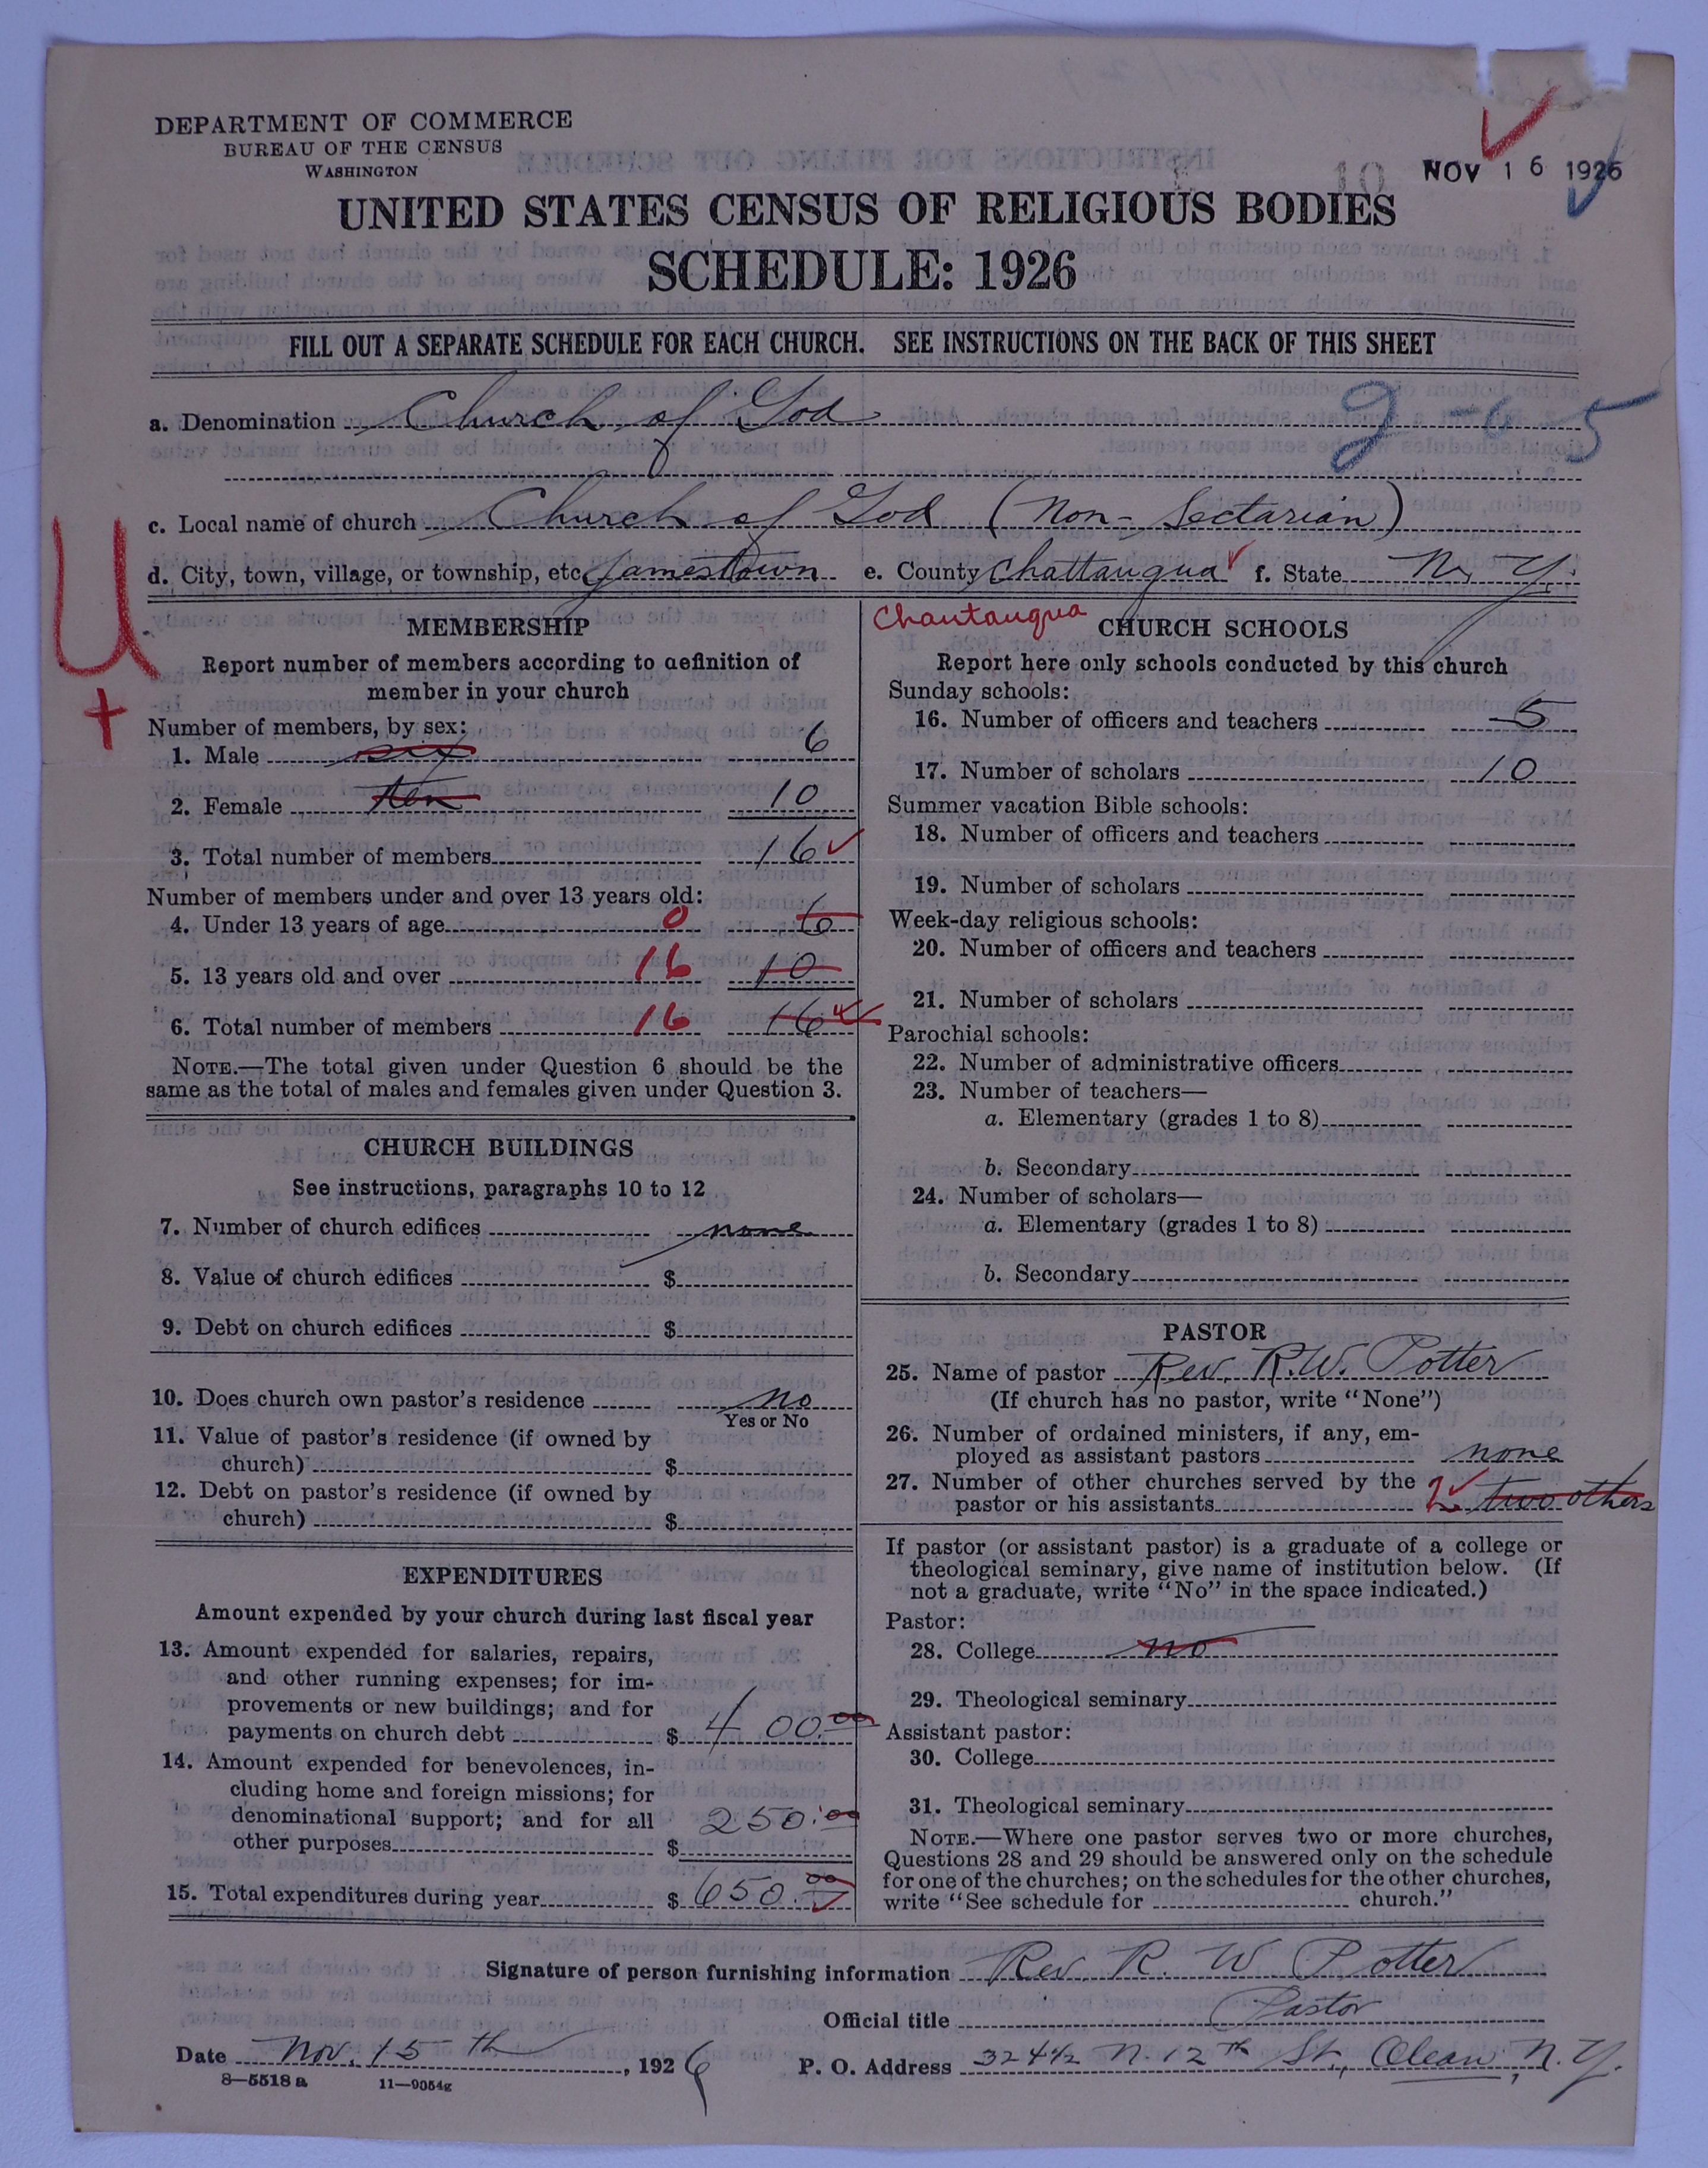 DEPARTMENT OF COMMERCE
BUREAU OF THE CENSUS
WASHINGTON
NOV 16 1926
UNITED STATES CENSUS OF RELIGIOUS BODIES
SCHEDULE: 1926
FILL OUT A SEPARATE SCHEDULE FOR EACH CHURCH. SEE INSTRUCTIONS ON THE BACK OF THIS SHEET
a. Denomination Church of God
2-0-5
c. Local name of church Church of God (Non-Sectarian)
d. City, town, village, or township, etc. Jamestown e. County Chattauqua f. State N. Y.
U
+
MEMBERSHIP
Report number of members according to definition of
member in your church
Number of members, by sex:
1. Male six 6
2. Female ten 10
3. Total number of members 16
Number of members under and over 13 years old:
4. Under 13 years of age 0 6
5. 13 years old and over 16 10
6. Total number of members 16 16
NOTE.—The total given under Question 6 should be the
same as the total of males and females given under Question 3.
CHURCH BUILDINGS
See instructions, paragraphs 10 to 12
7. Number of church edifices none
8. Value of church edifices $
9. Debt on church edifices $
10. Does church own pastor's residence no
Yes or No
11. Value of pastor's residence (if owned by
church) $
12. Debt on pastor's residence (if owned by
church) $
EXPENDITURES
Amount expended by your church during last fiscal year
13. Amount expended for salaries, repairs,
and other running expenses; for im-
provements or new buildings; and for
payments on church debt $ 400.00
14. Amount expended for benevolences, in-
cluding home and foreign missions; for
denominational support; and for all
other purposes $ 250.00
15. Total expenditures during year $ 650.00
Chautauqua
CHURCH SCHOOLS
Report here only schools conducted by this church
Sunday schools:
16. Number of officers and teachers 5
17. Number of scholars 10
Summer vacation Bible schools:
18. Number of officers and teachers
19. Number of scholars
Week-day religious schools:
20. Number of officers and teachers
21. Number of scholars
Parochial schools:
22. Number of administrative officers
23. Number of teachers—
a. Elementary (grades 1 to 8)
b. Secondary
24. Number of scholars—
a. Elementary (grades 1 to 8)
b. Secondary
PASTOR
25. Name of pastor Rev. R.W. Potter
(If church has no pastor, write "None")
26. Number of ordained ministers, if any, em-
ployed as assistant pastors none
27. Number of other churches served by the
pastor or his assistants 2 two others
If pastor (or assistant pastor) is a graduate of a college or
theological seminary, give name of institution below. (If
not a graduate, write "No" in the space indicated.)
Pastor:
28. College no
29. Theological seminary
Assistant pastor:
30. College
31. Theological seminary
NOTE.—Where one pastor serves two or more churches,
Questions 28 and 29 should be answered only on the schedule
for one of the churches; on the schedules for the other churches,
write "See schedule for church."
Signature of person furnishing information Rev. R. W. Potter
Official title Pastor
Date Nov. 15th, 1926 P. O. Address 324½ N. 12th St., Olean, N. Y.
8—5518 a 11—9054g